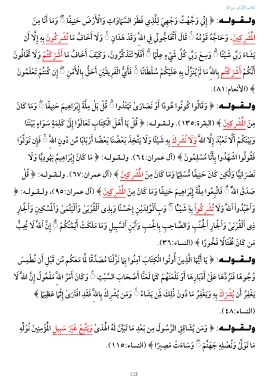 وقـولـه: ﴿ إِنِّي وَجَّهْتُ وَجْهِيَ لِلَّذِي فَطَرَ السَّمَاوَاتِ وَالْأَرْضَ حَنِيفًا وَمَا أَنَا مِنَ
الْمُشْرِكِينَ، وَحَاجَّهُ قَوْمُهُ قَالَ أَتُحَاجُّونِّي فِي اللَّهِ وَقَدْ هَدَانِ وَلَا أَخَافُ مَا تُشْرِكُونَ بِهِ إِلَّا أَن
يَشَاءَ رَبِّي شَيْئًا وَسِعَ رَبِّي كُلَّ شَيْءٍ عِلْمًا أَفَلَا تَتَذَكَّرُونَ، وَكَيْفَ أَخَافُ مَا أَشْرَكْتُمْ وَلَا تَخَافُونَ
أَنَّكُمْ أَشْرَكْتُم بِاللَّهِ مَا لَمْ يُنَزِّلْ بِهِ عَلَيْكُمْ سُلْطَانًا فَأَيُّ الْفَرِيقَيْنِ أَحَقُّ بِالْأَمْنِ إِن كُنتُمْ تَعْلَمُونَ
﴾ (الأنعام: ٨١).
وقـولـه: ﴿ وَقَالُوا كُونُوا هُودًا أَوْ نَصَارَىٰ تَهْتَدُوا قُلْ بَلْ مِلَّةَ إِبْرَاهِيمَ حَنِيفًا وَمَا كَانَ
مِنَ الْمُشْرِكِينَ ﴾ (البقرة: ١٣٥). وقـولـه: ﴿ قُلْ يَا أَهْلَ الْكِتَابِ تَعَالَوْا إِلَىٰ كَلِمَةٍ سَوَاءٍ بَيْنَنَا
وَبَيْنَكُمْ أَلَّا نَعْبُدَ إِلَّا اللَّهَ وَلَا نُشْرِكَ بِهِ شَيْئًا وَلَا يَتَّخِذَ بَعْضُنَا بَعْضًا أَرْبَابًا مِّن دُونِ اللَّهِ فَإِن تَوَلَّوْا
فَقُولُوا اشْهَدُوا بِأَنَّا مُسْلِمُونَ ﴾ (آل عمران: ٦٤). ولـقـولـه: ﴿ مَا كَانَ إِبْرَاهِيمُ يَهُودِيًّا وَلَا
نَصْرَانِيًّا وَلَٰكِن كَانَ حَنِيفًا مُّسْلِمًا وَمَا كَانَ مِنَ الْمُشْرِكِينَ ﴾ (آل عمران: ٦٧). ولـقـولـه: ﴿ قُلْ
صَدَقَ اللَّهُ فَاتَّبِعُوا مِلَّةَ إِبْرَاهِيمَ حَنِيفًا وَمَا كَانَ مِنَ الْمُشْرِكِينَ ﴾ (آل عمران: ٩٥). ولـقـولـه: ﴿
وَاعْبُدُوا اللَّهَ وَلَا تُشْرِكُوا بِهِ شَيْئًا وَبِالْوَالِدَيْنِ إِحْسَانًا وَبِذِي الْقُرْبَىٰ وَالْيَتَامَىٰ وَالْمَسَاكِينِ وَالْجَارِ
ذِي الْقُرْبَىٰ وَالْجَارِ الْجُنُبِ وَالصَّاحِبِ بِالْجَنبِ وَابْنِ السَّبِيلِ وَمَا مَلَكَتْ أَيْمَانُكُمْ إِنَّ اللَّهَ لَا يُحِبُّ
مَن كَانَ مُخْتَالًا فَخُورًا ﴾ (النساء: ٣٦).
وقـولـه: ﴿ يَا أَيُّهَا الَّذِينَ أُوتُوا الْكِتَابَ آمِنُوا بِمَا نَزَّلْنَا مُصَدِّقًا لِّمَا مَعَكُم مِّن قَبْلِ أَن نَّطْمِسَ
وُجُوهًا فَنَرُدَّهَا عَلَىٰ أَدْبَارِهَا أَوْ نَلْعَنَهُمْ كَمَا لَعَنَّا أَصْحَابَ السَّبْتِ وَكَانَ أَمْرُ اللَّهِ مَفْعُولًا إِنَّ اللَّهَ لَا
يَغْفِرُ أَن يُشْرَكَ بِهِ وَيَغْفِرُ مَا دُونَ ذَٰلِكَ لِمَن يَشَاءُ وَمَن يُشْرِكْ بِاللَّهِ فَقَدِ افْتَرَىٰ إِثْمًا عَظِيمًا ﴾
(النساء: ٤٨).
وقـولـه: ﴿ وَمَن يُشَاقِقِ الرَّسُولَ مِن بَعْدِ مَا تَبَيَّنَ لَهُ الْهُدَىٰ وَيَتَّبِعْ غَيْرَ سَبِيلِ الْمُؤْمِنِينَ نُوَلِّهِ
مَا تَوَلَّىٰ وَنُصْلِهِ جَهَنَّمَ وَسَاءَتْ مَصِيرًا ﴾ (النساء: ١١٥).